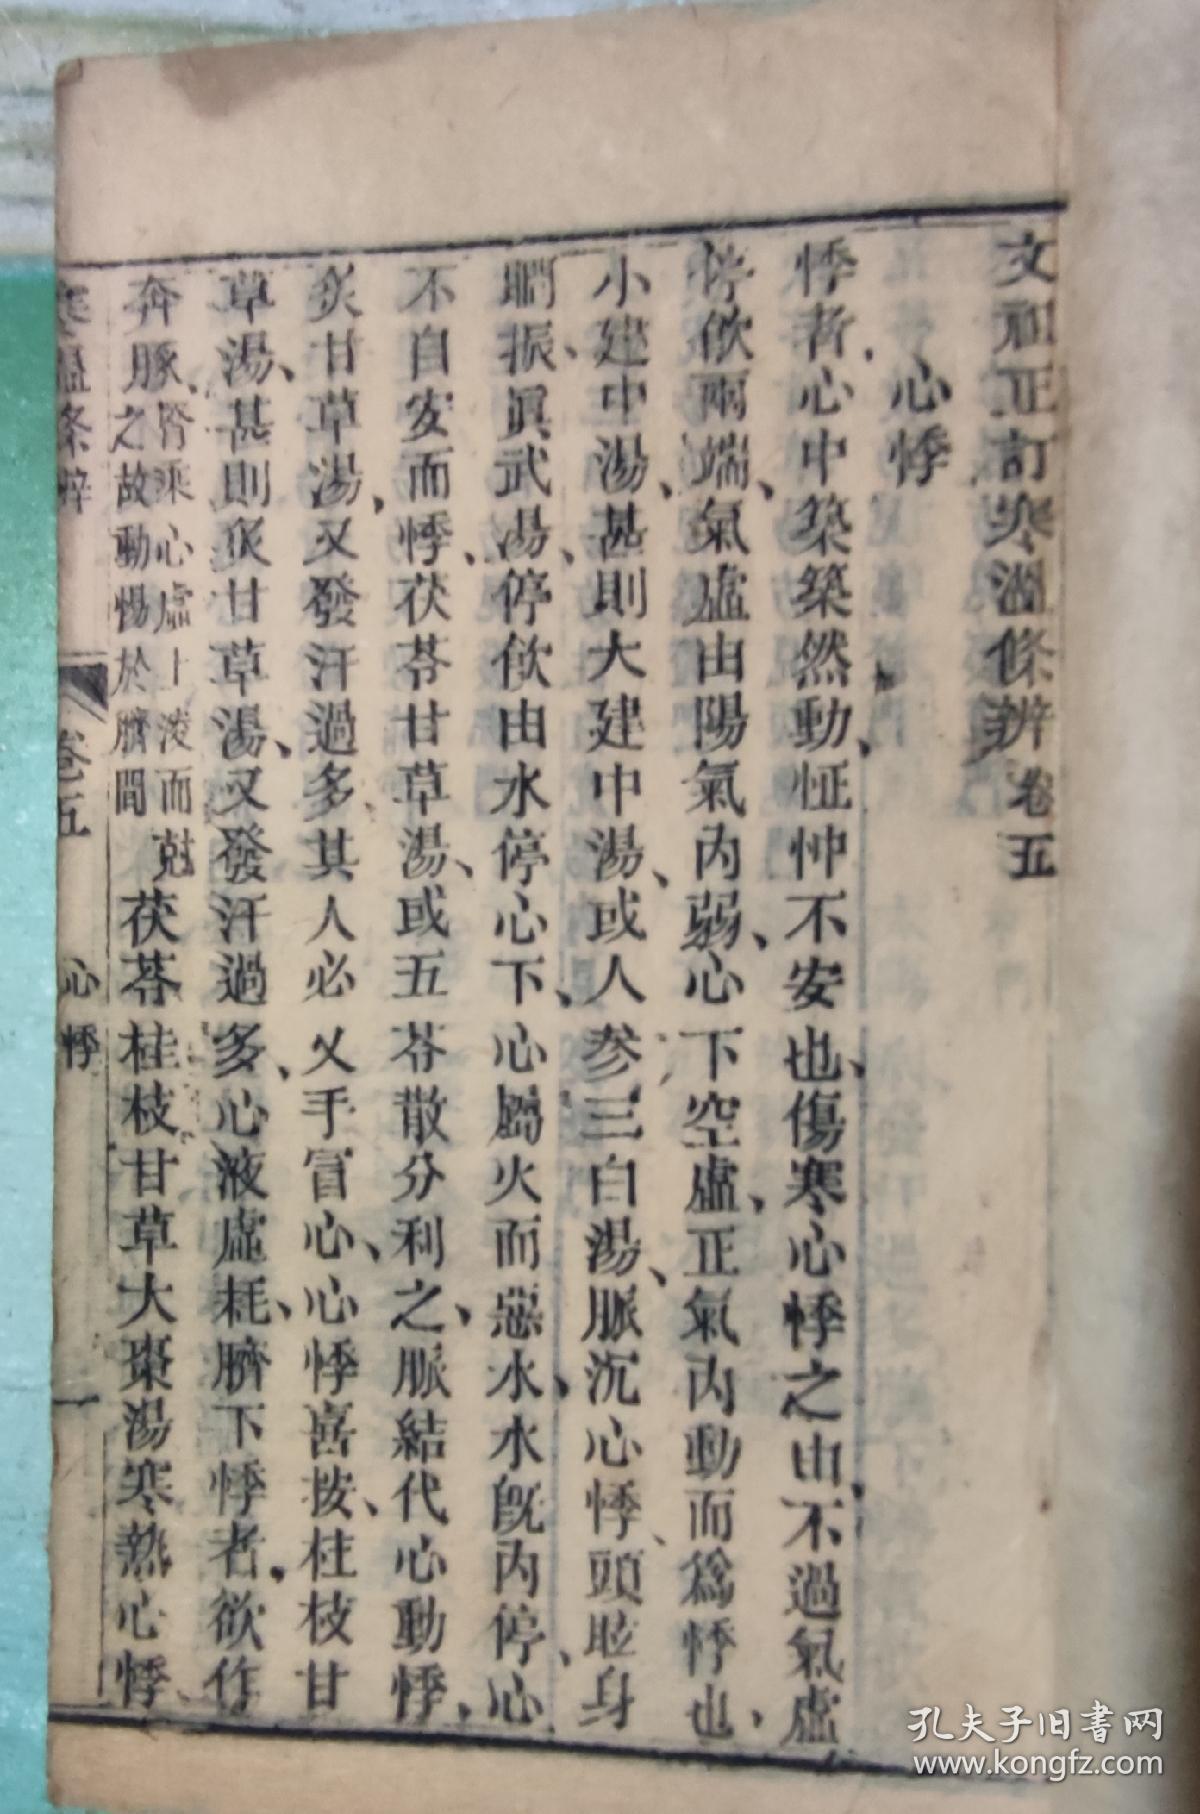 文祖正訂寒溫條辨卷五
心悸
悸者心中築築然動、怔忡不安也、傷寒心悸之由、不過氣虛
停飲兩端、氣虛由陽氣內弱、心下空虛、正氣內動而爲悸也、
小建中湯、甚則大建中湯、或人參三白湯、脈沉心悸、頭眩身
瞤振、眞武湯、停飲由水停心下、心屬火而惡水、水旣內停、心
不自安而悸、茯苓甘草湯、或五苓散分利之、脈結代心動悸、
炙甘草湯、又發汗過多、其人必叉手冒心、心悸喜按、桂枝甘
草湯、甚則炙甘草湯、又發汗過多、心液虛耗、臍下悸者、欲作
奔豚、腎乘心虛上淩而尅之故動惕於臍間茯苓桂枝甘草大棗湯寒熱心悸
寒溫條辨 卷五 心悸 一
孔夫子旧书网
www.kongfz.com